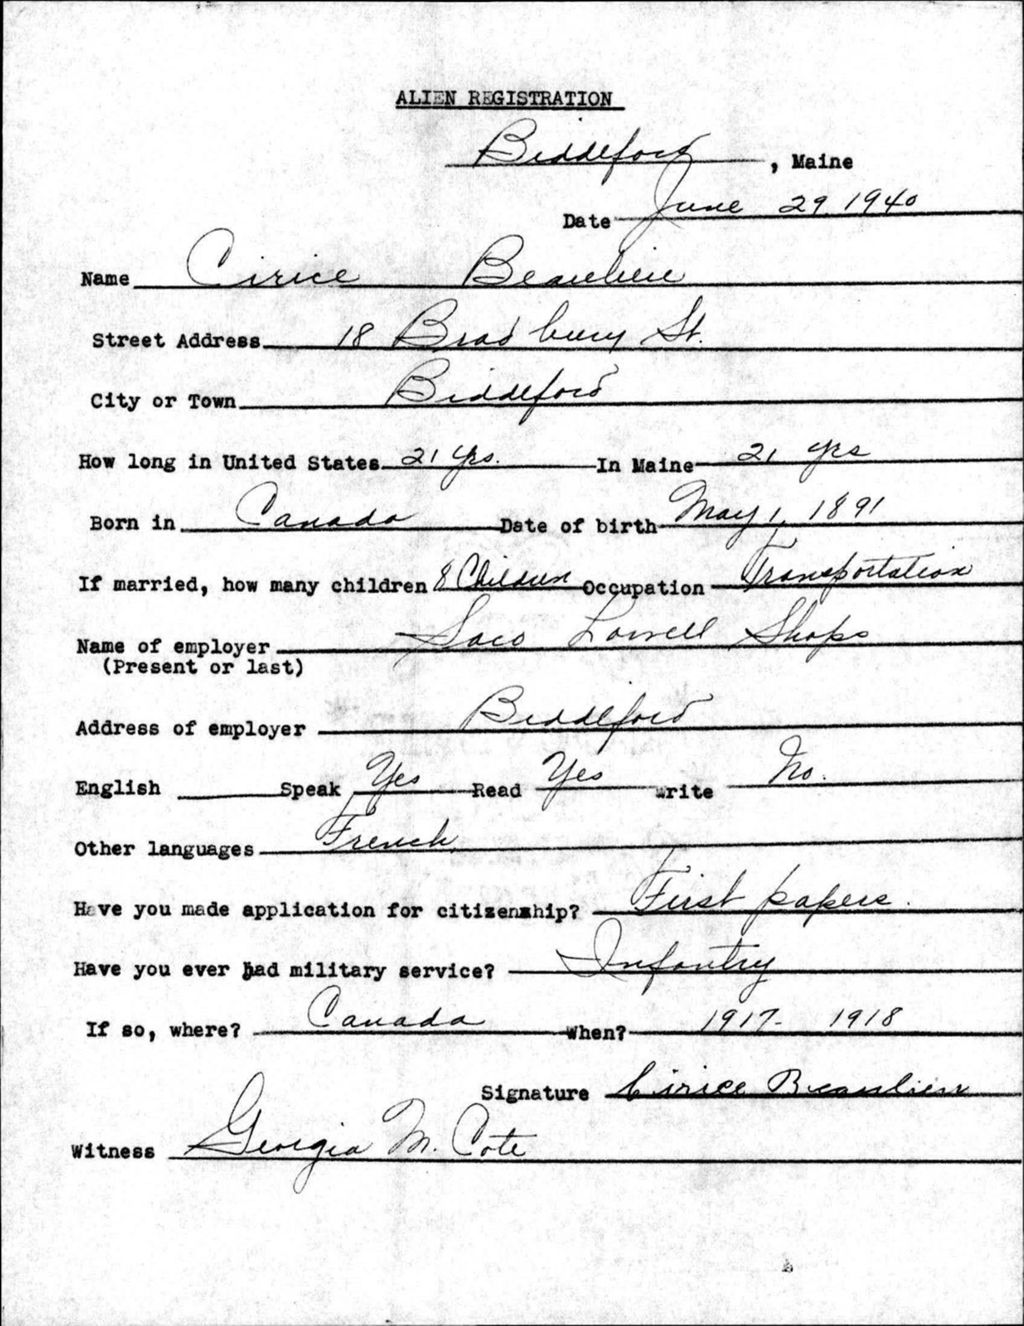 ALIEN REGISTRATION
Biddeford, Maine
Date June 29, 1940
Name Cirice Beaulieu
Street Address 18 Bradbury St.
City or Town Biddeford
How long in United States 21 yrs. In Maine 21 yrs
Born in Canada Date of birth May 1, 1891
If married, how many children 8 Children Occupation Transportation
Name of employer Saco Lowell Shops
(Present or last)
Address of employer Biddeford
English Speak Yes Read Yes Write No.
Other languages French
Have you made application for citizenship? First papers.
Have you ever had military service? Infantry
If so, where? Canada When? 1917- 1918
Signature Cirice Beaulieu
Witness Georgia M. Cote